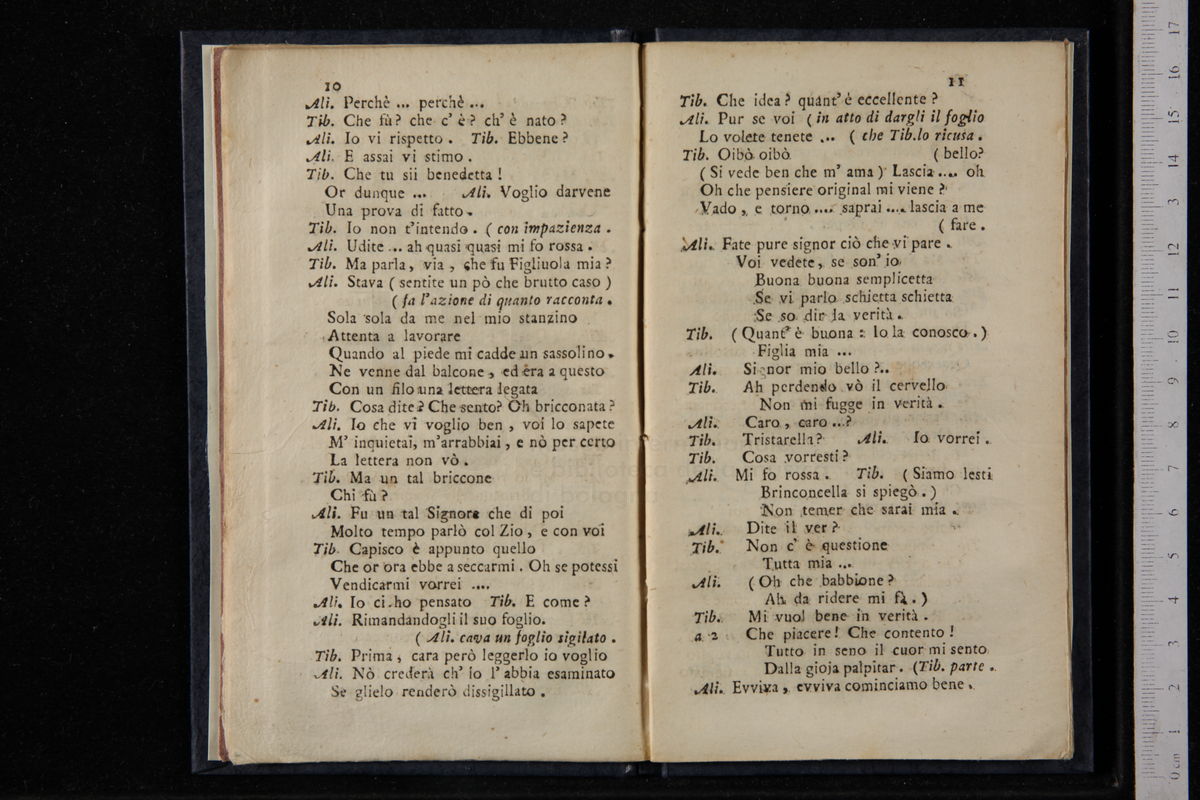 10
Ali. Perchè ... perchè ...
Tib. Che fù? che c' è? ch' è nato?
Ali. Io vi rispetto. Tib. Ebbene?
Ali. E assai vi stimo.
Tib. Che tu sii benedetta!
Or dunque ... Ali. Voglio darvene
Una prova di fatto.
Tib. Io non t'intendo. ( con impazienza.
Ali. Udite ... ah quasi quasi mi fo rossa.
Tib. Ma parla, via, che fu Figliuola mia?
Ali. Stava ( sentite un pò che brutto caso )
( fa l'azione di quanto racconta.
Sola sola da me nel mio stanzino
Attenta a lavorare
Quando al piede mi cadde un sassolino.
Ne venne dal balcone, ed era a questo
Con un filo una lettera legata
Tib. Cosa dite? Che sento? Oh bricconata?
Ali. Io che vi voglio ben, voi lo sapete
M' inquietai, m'arrabbiai, e nò per certo
La lettera non vò.
Tib. Ma un tal briccone
Chi fù?
Ali. Fu un tal Signore che di poi
Molto tempo parlò col Zio, e con voi
Tib. Capisco è appunto quello
Che or ora ebbe a seccarmi. Oh se potessi
Vendicarmi vorrei ....
Ali. Io ci ho pensato Tib. E come?
Ali. Rimandandogli il suo foglio.
( Ali. cava un foglio sigilato.
Tib. Prima, cara però leggerlo io voglio
Ali. Nò crederà ch' io l' abbia esaminato
Se glielo renderò dissigillato.
11
Tib. Che idea? quant' é eccellente?
Ali. Pur se voi ( in atto di dargli il foglio
Lo volete tenete ... ( che Tib. lo ricusa.
Tib. Oibò oibò ( bello?
( Si vede ben che m' ama ) Lascia .... oh
Oh che pensiere original mi viene?
Vado, e torno .... saprai .... lascia a me
( fare.
Ali. Fate pure signor ciò che vi pare.
Voi vedete, se son' io
Buona buona semplicetta
Se vi parlo schietta schietta
Se so dir la verità.
Tib. (Quant' è buona: lo la conosco.)
Figlia mia ...
Ali. Signor mio bello?..
Tib. Ah perdendo vò il cervello
Non mi fugge in verità.
Ali. Caro, caro ...?
Tib. Tristarella? Ali. Io vorrei.
Tib. Cosa vorresti?
Ali. Mi fo rossa. Tib. (Siamo lesti
Brinconcella si spiegò.)
Non temer che sarai mia.
Ali. Dite il ver?
Tib. Non c' è questione
Tutta mia ...
Ali. (Oh che babbione?
Ah da ridere mi fà.)
Tib. Mi vuol bene in verità.
a 2 Che piacere! Che contento!
Tutto in seno il cuor mi sento
Dalla gioja palpitar. (Tib. parte.
Ali. Evviva, evviva cominciamo bene.
0 cm 1 2 3 4 5 6 7 8 9 10 11 12 13 14 15 16 17